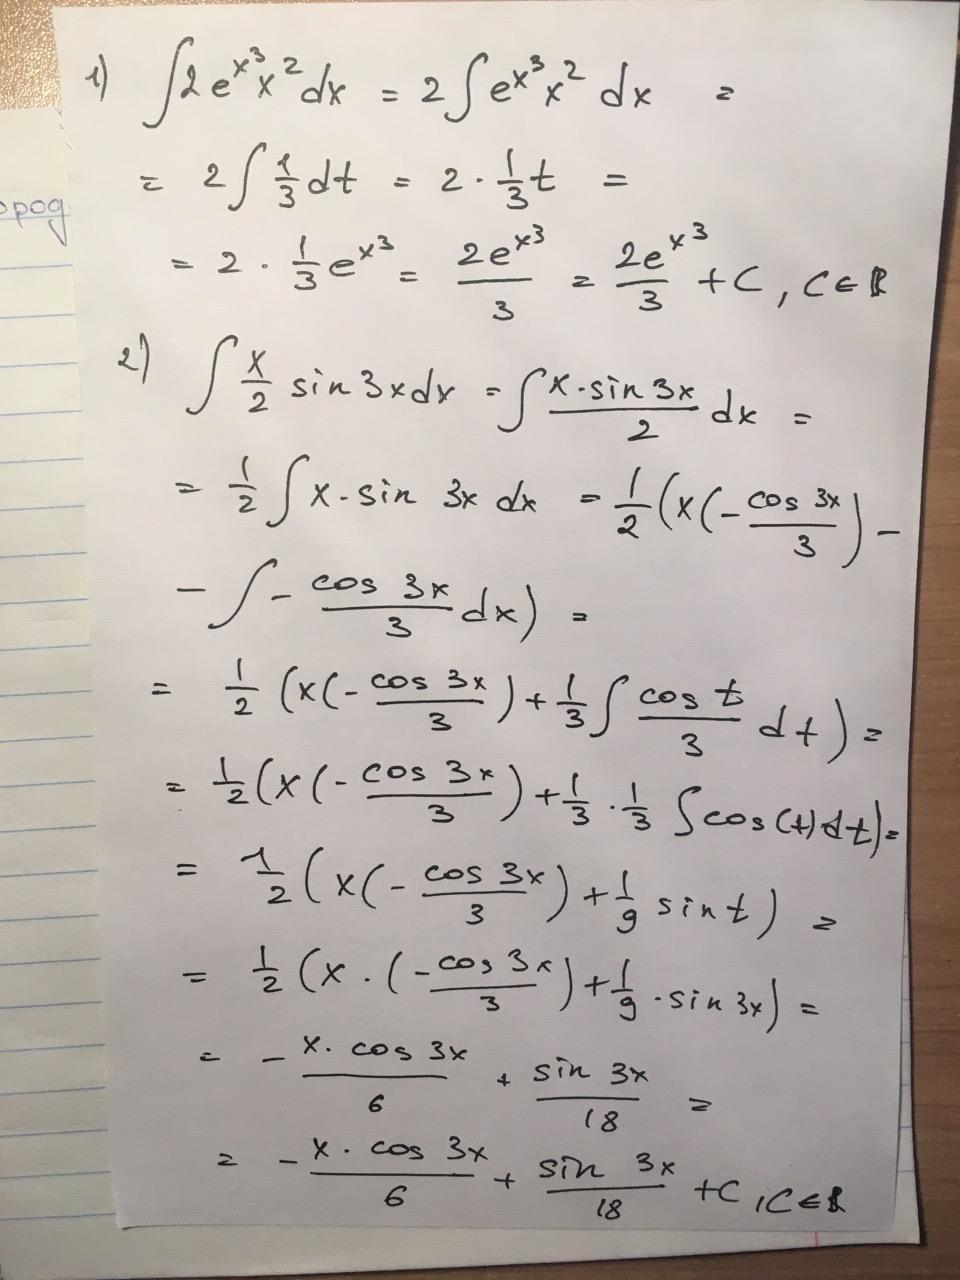 1) ∫2e^{x^3}x^2dx = 2∫e^{x^3}x^2 dx =
= 2∫\frac{1}{3}dt = 2·\frac{1}{3}t =
= 2·\frac{1}{3}e^{x^3} = \frac{2e^{x^3}}{3} = \frac{2e^{x^3}}{3} + C, C∈ℝ
ород
2) ∫\frac{x}{2} sin 3x dx = ∫\frac{x·sin 3x}{2} dx =
= \frac{1}{2}∫x·sin 3x dx = \frac{1}{2}(x(-\frac{cos 3x}{3}) -
- ∫-\frac{cos 3x}{3}dx) =
= \frac{1}{2}(x(-\frac{cos 3x}{3}) + \frac{1}{3}∫\frac{cos t}{3}dt) =
= \frac{1}{2}(x(-\frac{cos 3x}{3}) + \frac{1}{3}·\frac{1}{3}∫cos(t)dt) =
= \frac{1}{2}(x(-\frac{cos 3x}{3}) + \frac{1}{9} sin t) =
= \frac{1}{2}(x·(-\frac{cos 3x}{3}) + \frac{1}{9}·sin 3x) =
= -\frac{x·cos 3x}{6} + \frac{sin 3x}{18} =
= -\frac{x·cos 3x}{6} + \frac{sin 3x}{18} + C, C∈ℝ